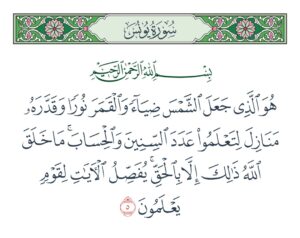 سُورَةُ يُونُسَ
بِسْمِ اللَّهِ الرَّحْمَٰنِ الرَّحِيمِ
هُوَ ٱلَّذِي جَعَلَ ٱلشَّمْسَ ضِيَآءً وَٱلْقَمَرَ نُورًا وَقَدَّرَهُۥ
مَنَازِلَ لِتَعْلَمُوا۟ عَدَدَ ٱلسِّنِينَ وَٱلْحِسَابَ ۚ مَا خَلَقَ
ٱللَّهُ ذَٰلِكَ إِلَّا بِٱلْحَقِّ ۚ يُفَصِّلُ ٱلْءَايَٰتِ لِقَوْمٍ
يَعْلَمُونَ ٥